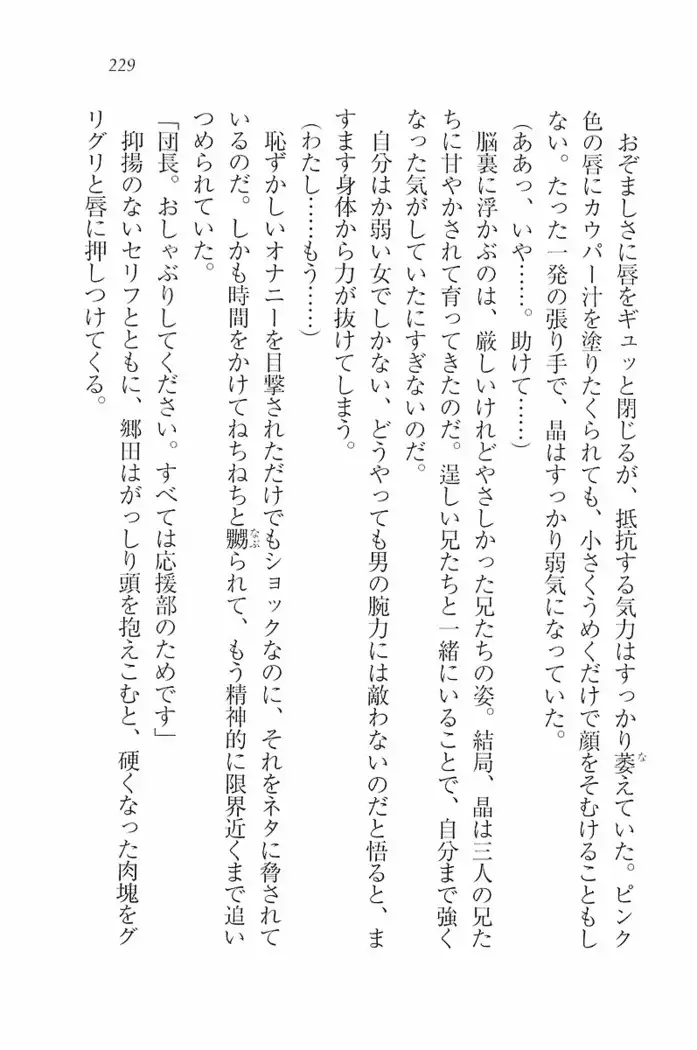 229
おぞましさに唇をギュッと閉じるが、抵抗する気力はすっかり萎えていた。ピンク
色の唇にカウパー汁を塗りたくられても、小さくうめくだけで顔をそむけることもし
ない。たった一発の張り手で、晶はすっかり弱気になっていた。
(ああっ、いや……。助けて……)
脳裏に浮かぶのは、厳しいけれどやさしかった兄たちの姿。結局、晶は三人の兄た
ちに甘やかされて育ってきたのだ。逞しい兄たちと一緒にいることで、自分まで強く
なった気がしていたにすぎないのだ。
自分はか弱い女でしかない、どうやっても男の腕力には敵わないのだと悟ると、ま
すます身体から力が抜けてしまう。
(わたし……もう……)
恥ずかしいオナニーを目撃されただけでもショックなのに、それをネタに脅されて
いるのだ。しかも時間をかけてねちねちと嬲られて、もう精神的に限界近くまで追い
つめられていた。
「団長。おしゃぶりしてください。すべては応援部のためです」
抑揚のないセリフとともに、郷田はがっしり頭を抱えこむと、硬くなった肉塊をグ
リグリと唇に押しつけてくる。